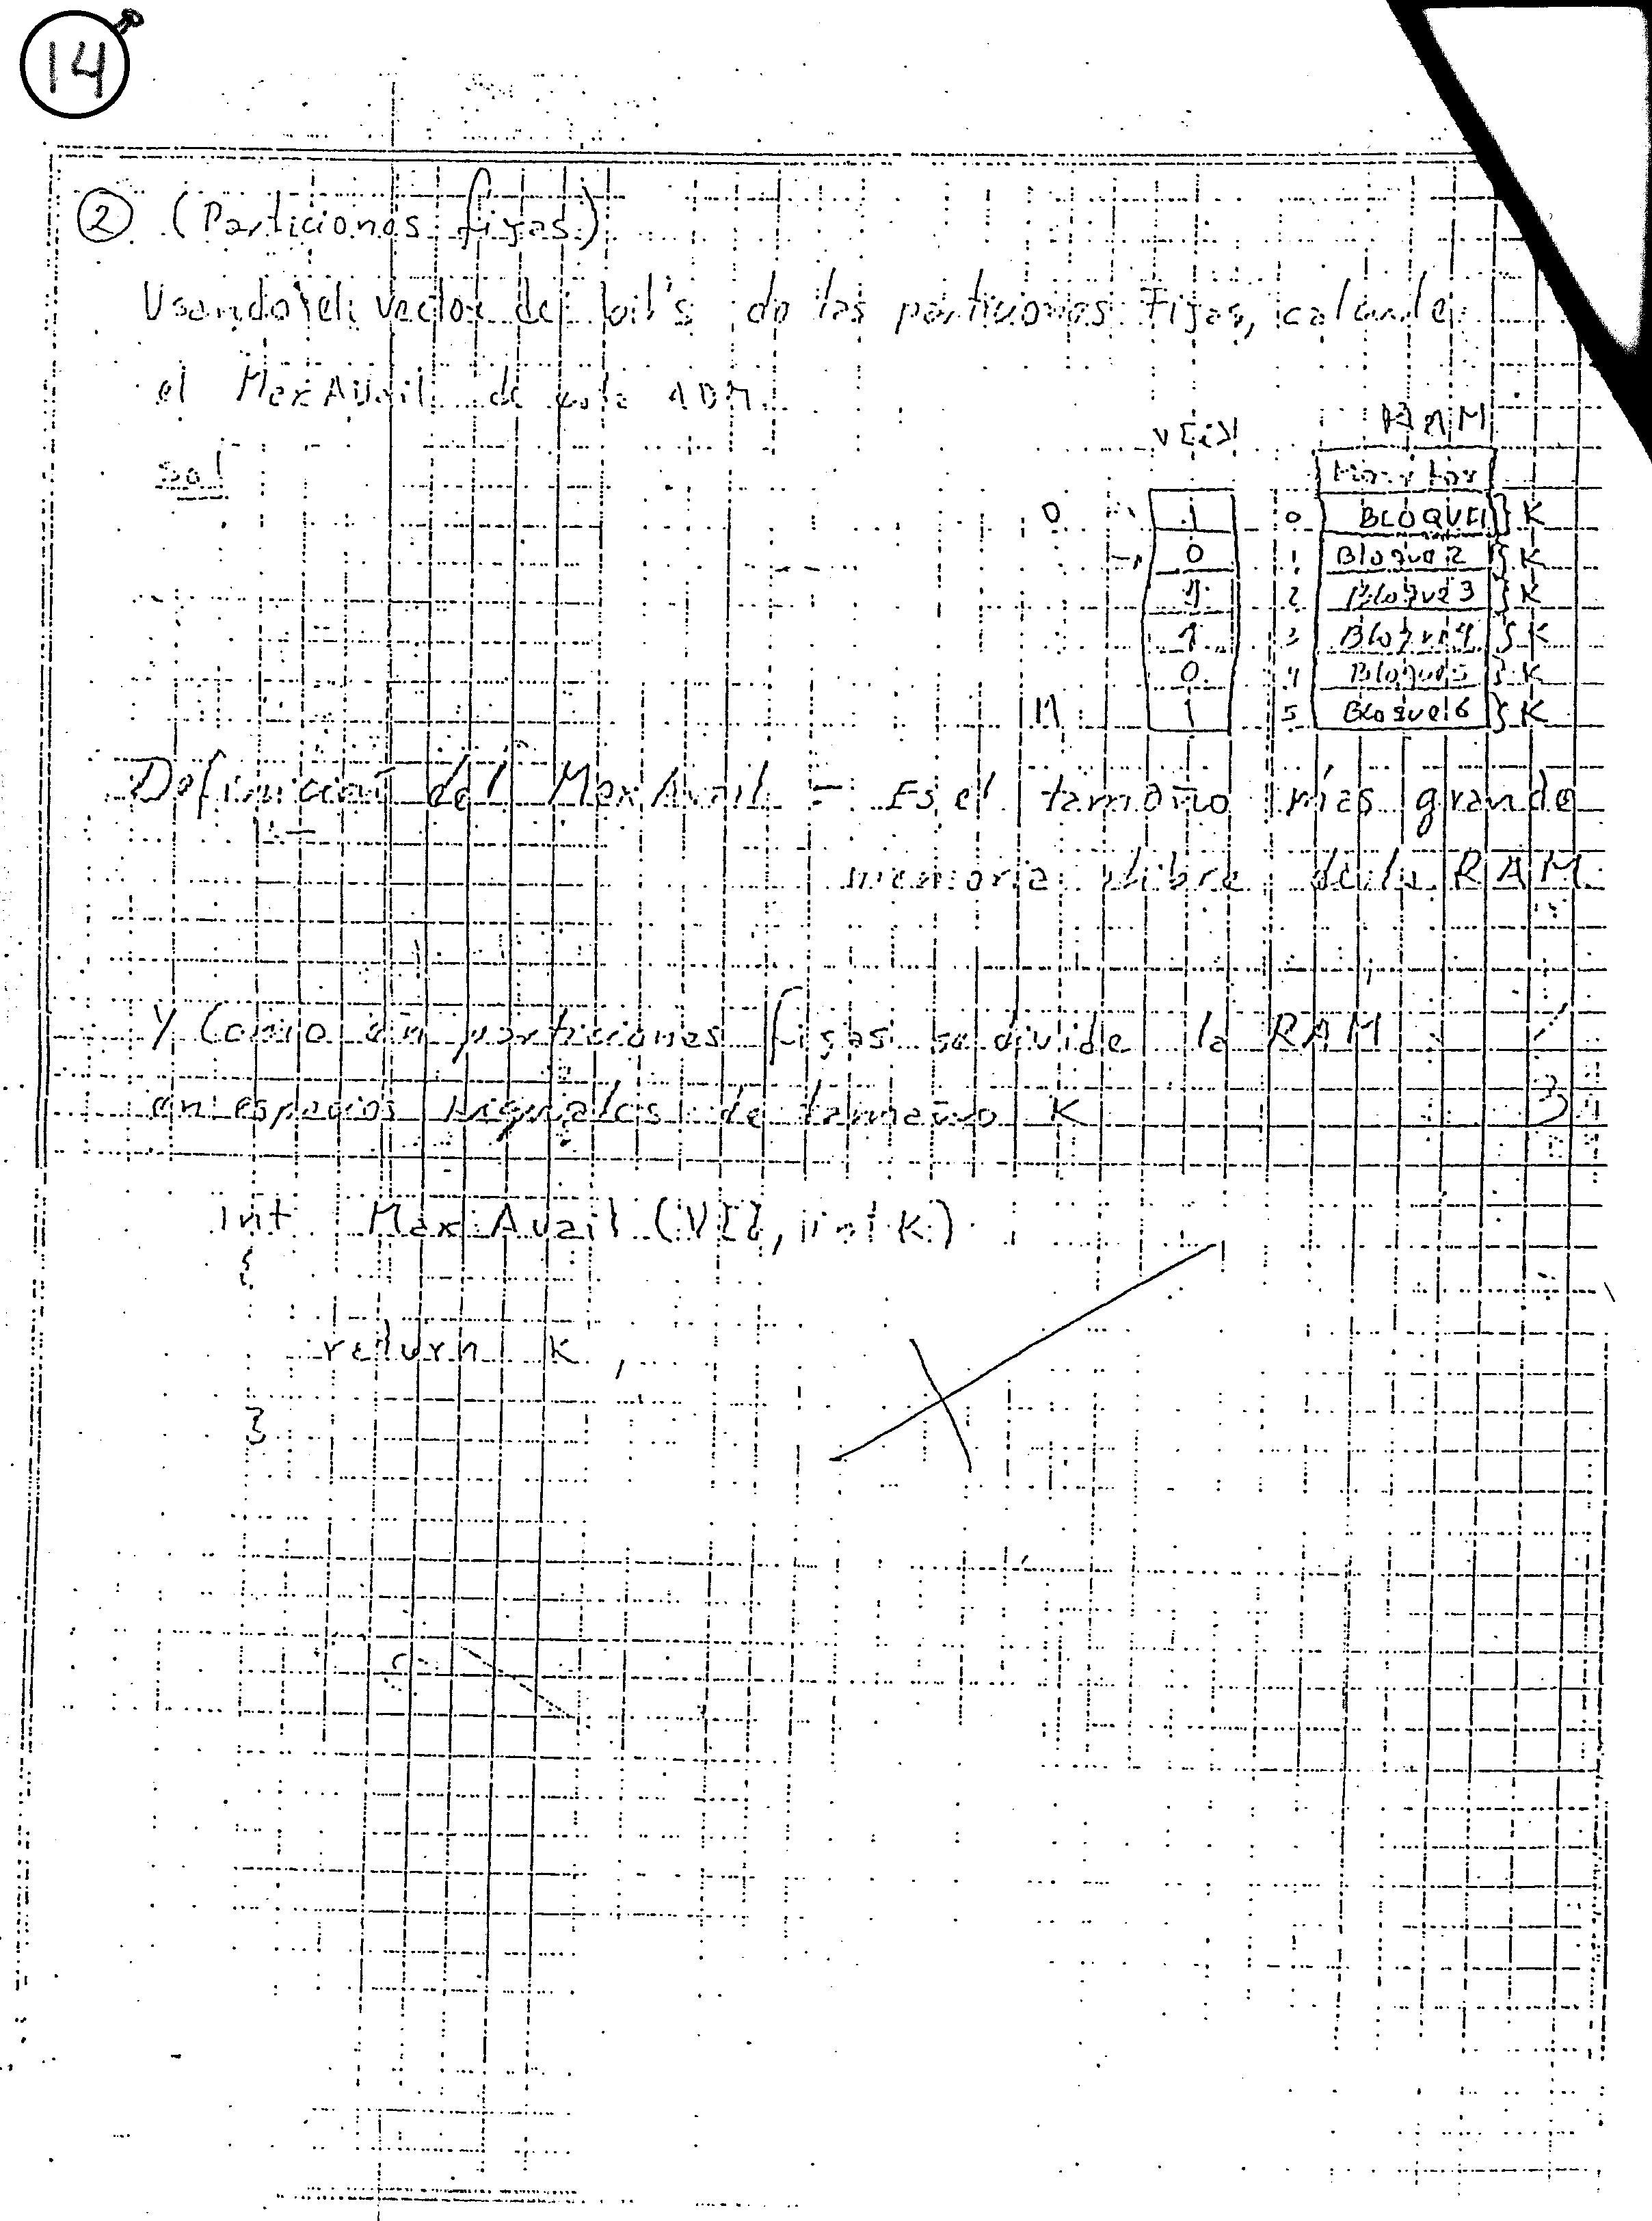 14
② (Particiones fijas)
Usando el vector de bit's de las particiones Fijas, calcule
el MaxAvail de este ADM.
sol
V[i] RAM
0 1 0 BLOQUE1 } K
→ 0 1 Bloque 2 } K
1 2 Bloque 3 } K
1 3 Bloque 4 } K
0 4 Bloque 5 } K
n 1 5 Bloque 6 } K
Definición del MaxAvail = Es el tamaño más grande
memoria libre de la RAM
Y Como en particiones fijas se divide la RAM
en espacios iguales de tamaño K
int MaxAvail (V[], int K)
{
return K;
}